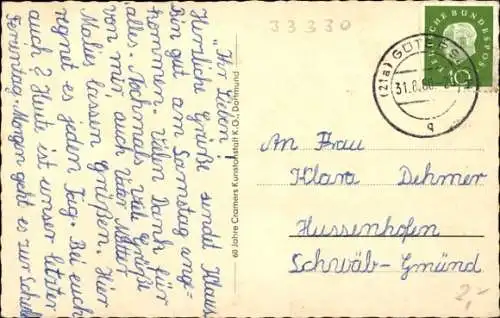 33330
"Ihr Lieben!
Herzliche Grüße sendet Klaus
Bin gut am Samstag ange-
kommen. Vielen Dank für
alles. Nochmals viele Grüße
von mir, auch Vater Mutter
Malies lassen Grüßen. Hier
regnet es jeden Tag. Bei euch
auch? Heute ist unser letzter
Ferientag. Morgen geht es zur Schule
60 Jahre Cramers Kunstanstalt K.G., Dortmund
DEUTSCHE BUNDESPOST
10
(21a) GÜTERSLOH
31.8.60
q
An Frau
Klara Dehmer
Hussenhofen
Schwäb-Gmünd
2,-